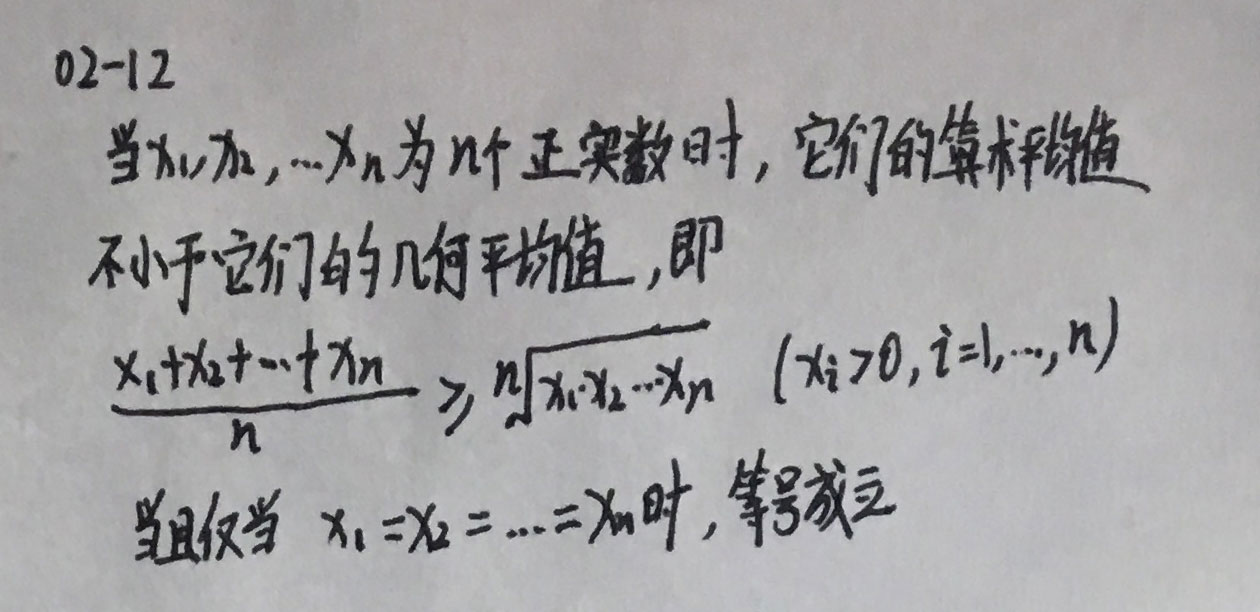 02-12
当x₁,x₂,…xₙ为n个正实数时,它们的算术平均值
不小于它们的几何平均值,即
(x₁+x₂+…+xₙ)/n ≥ ⁿ√(x₁·x₂…xₙ) (xᵢ>0,i=1,…,n)
当且仅当 x₁=x₂=…=xₙ时,等号成立